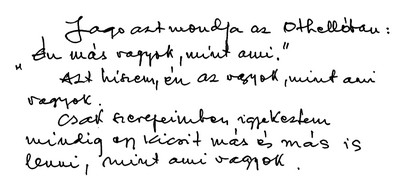 Jago azt mondja az Othellóban:
„Én más vagyok, mint ami."
Azt hiszem, én az vagyok, mint ami
vagyok.
Csak szerepeimben igyekeztem
mindig egy kicsit más és más is
lenni, mint ami vagyok.